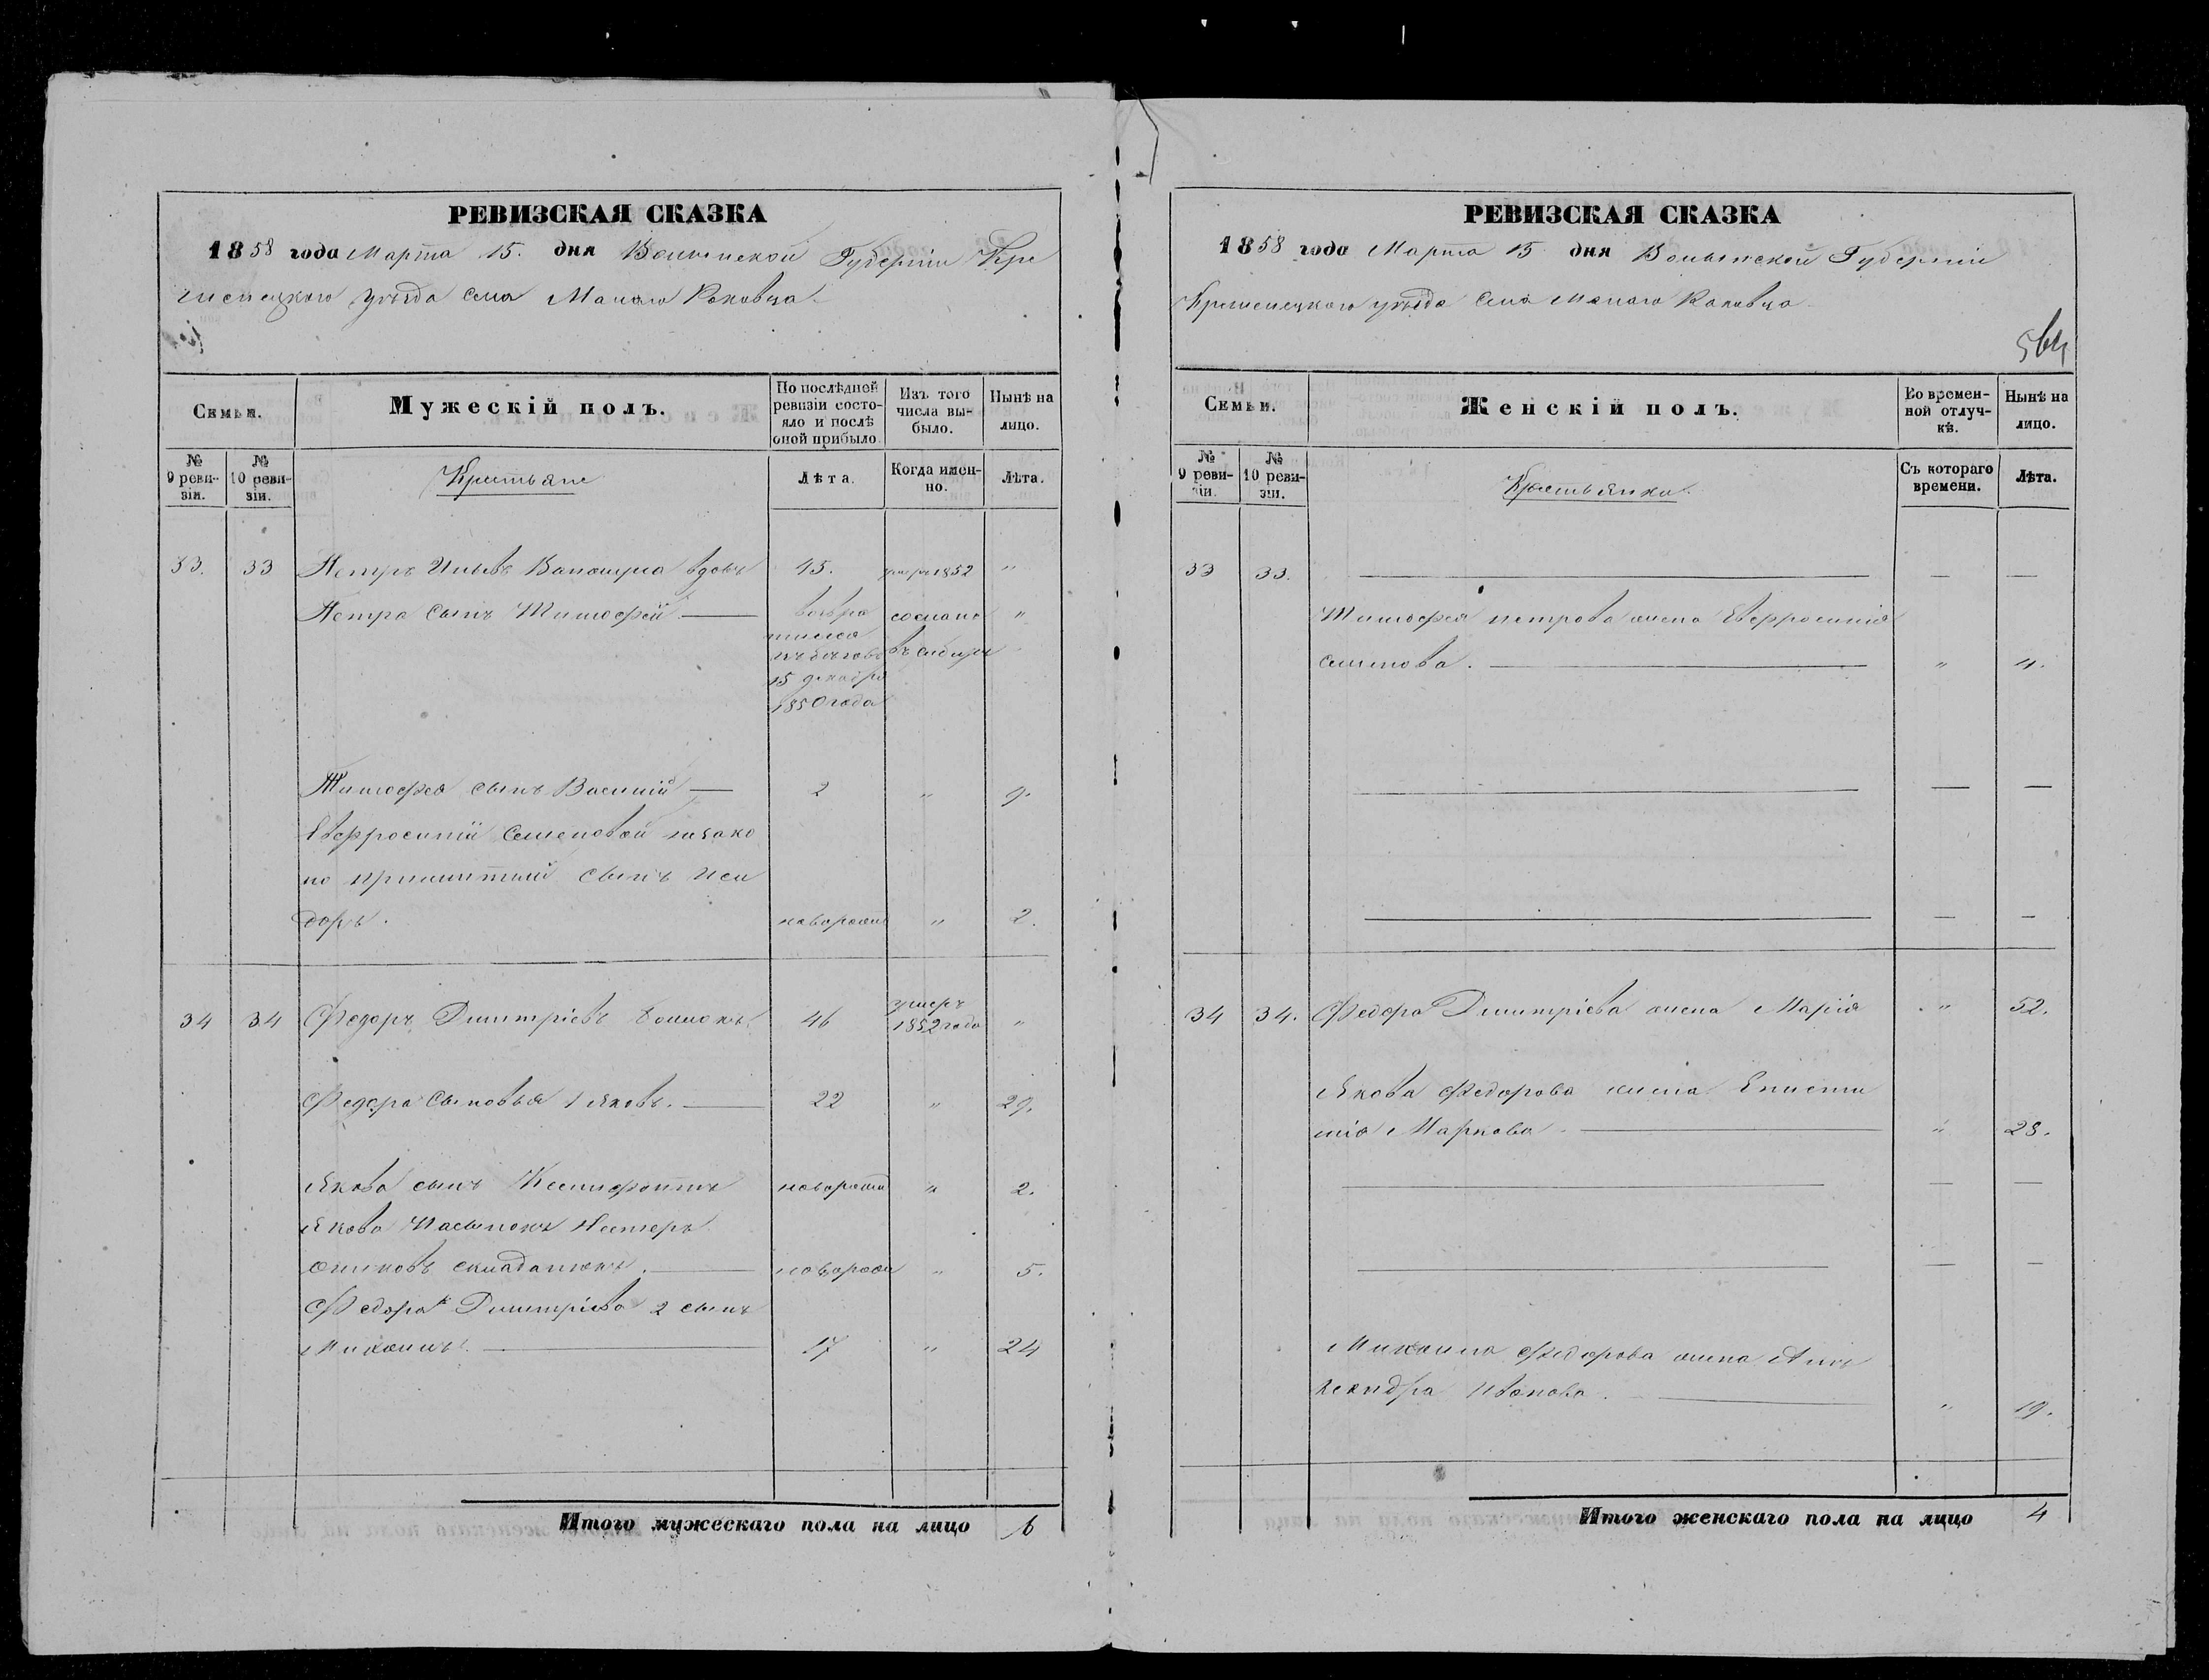 РЕВИЗСКАЯ СКАЗКА
1858 года Марта 15. дня Волынской Губерніи Кре
менецкого уѣзда села Малаго Раковца
Семьи.
Мужескій полъ.
По послѣдней ревизіи состояло и послѣ оной прибыло.
Изъ того числа выбыло.
Нынѣ на лицо.
№ 9 ревизіи.
№ 10 ревизіи.
Крестьяне
Лѣта.
Когда именно.
Лѣта.
33. 33 Петръ Ильевъ вдовъ 45. умеръ 1852 "
Петра сынъ Тимофей — возвратился изъ бѣговъ 15 декабря 1850 года сосланъ въ Сибирь "
Тимофея сынъ Василій — 2 " 9.
Евфросиніи Семеновой незако
но прижитый сынъ Иси
доръ. новорожд " 2.
34 34 Федоръ Димитріевъ 46 умеръ 1852 года "
Федора сыновья 1 Яковъ. — 22 " 29.
Якова сынъ Ксенофонтъ новорожд " 2.
Якова пасынокъ Нестеръ
новорожд " 5.
Федора Димитріева 2 сынъ
Михаилъ. — 17 " 24
Итого мужескаго пола на лицо 6
РЕВИЗСКАЯ СКАЗКА
1858 года Марта 15 дня Волынской Губерніи
Кременецкого уѣзда села Малаго Раковца
564
Семьи.
Женскій полъ.
Во временной отлучкѣ.
Нынѣ на лицо.
№ 9 ревизіи.
№ 10 ревизіи.
Крестьянки.
Съ котораго времени.
Лѣта.
33 33. — — —
Тимофея Петрова жена Евфросинія
Семенова. — "
— — —
— — —
34 34. Федора Димитріева жена Марія " 52.
Якова Федорова жена Еписти
мія Маркова — " 28.
— — —
— — —
Михаила Федорова жена Алек
сандра Иванова. — " 19.
Итого женскаго пола на лицо 4